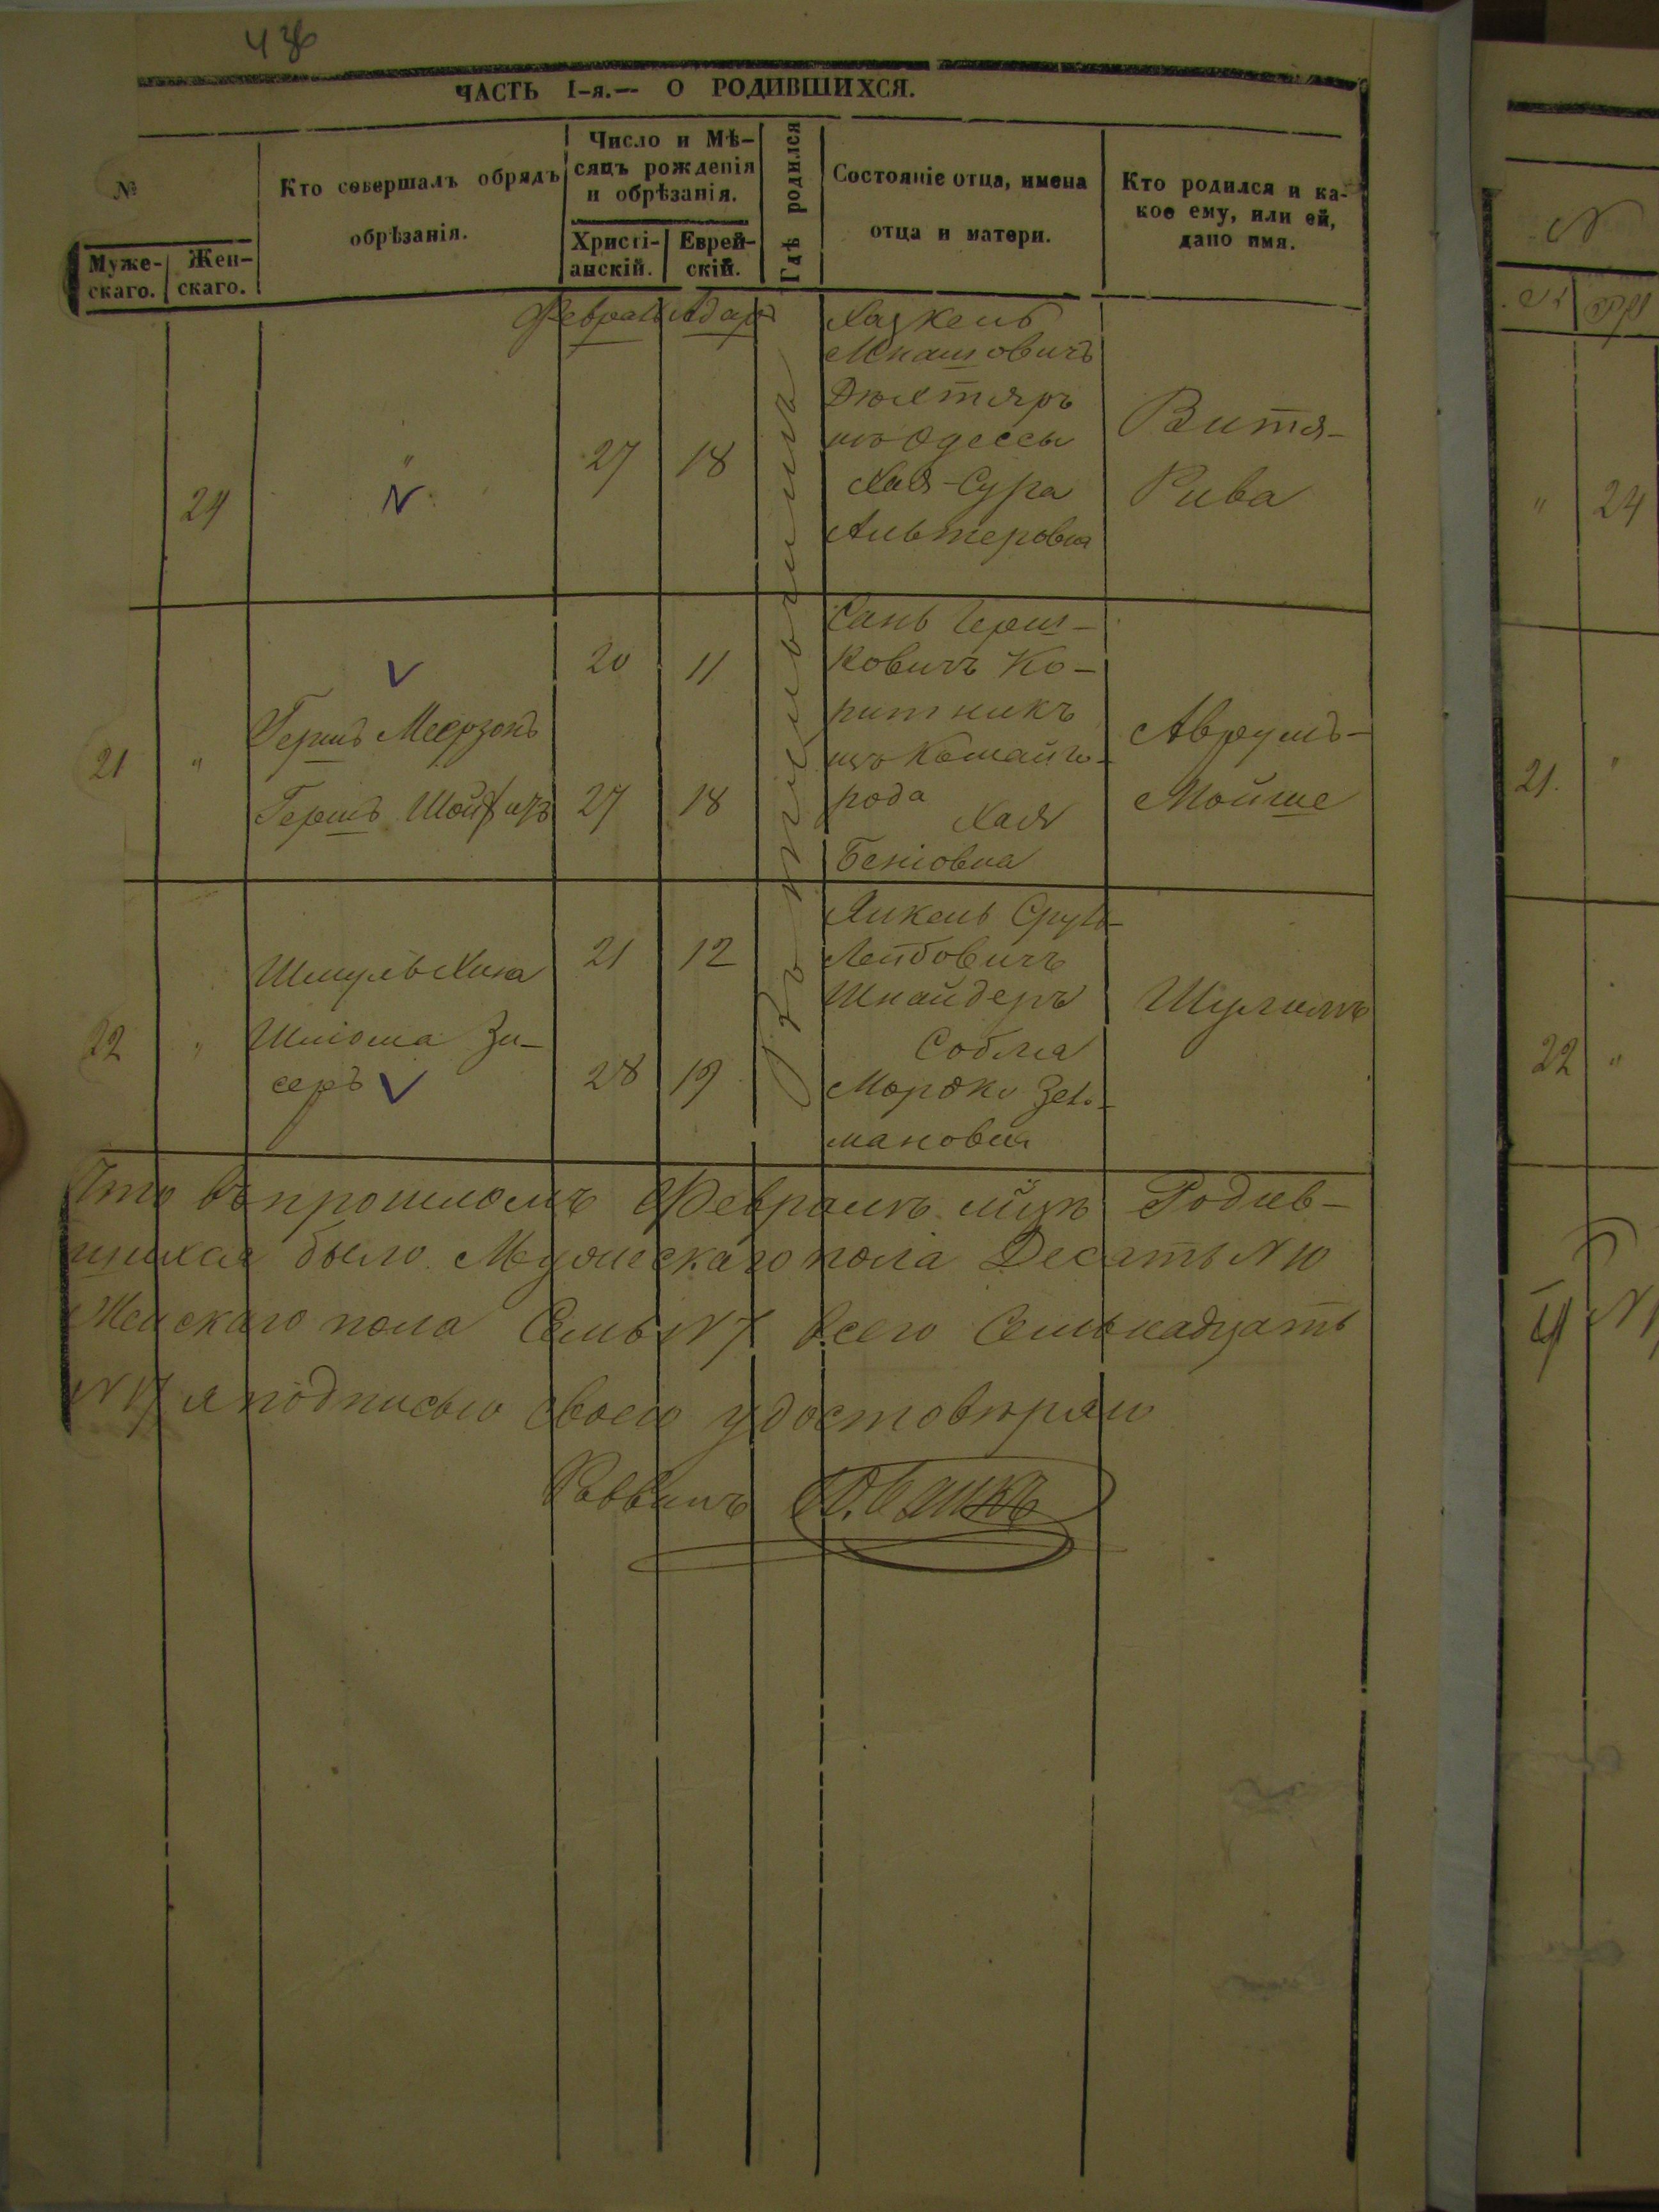 ЧАСТЬ I-я.— О РОДИВШИХСЯ.
№
Муже-
скаго.
Жен-
скаго.
Кто совершалъ обрядъ
обрѣзанія.
Число и Мѣ-
сяцъ рожденія
и обрѣзанія.
Христі-
анскій.
Еврей-
скій.
Гдѣ родился
Состояніе отца, имена
отца и матери.
Кто родился и ка-
кое ему, или ей,
дано имя.
Февраль Адаръ
24
"
27
18
Хаскель
Мнашовичъ
изъ Одессы
Хая-Сура
Альтеровна
Витя-
Рива
21
"
Гершъ Меерзонъ
Гершъ
20
11
27
18
Гершъ-
ковичъ Ко-
ритникъ
рода
Хая
Беніовна
Аврумъ-
Мойше
22
"
Шмуль Хина
Шліома Зи-
серъ
21
12
28
19
Янкель Сруль-
Лейбовичъ
Шнайдеръ
Зель-
мановна
Шулимъ
Что въ прошломъ Февралѣ м-цѣ Родив-
шихся было Мужескаго пола Десять N 10
Женскаго пола Семь N 7 всего Семьнадцать
N 17 я подписью своею удостовѣряю
Раввинъ
24
21.
"
22
"